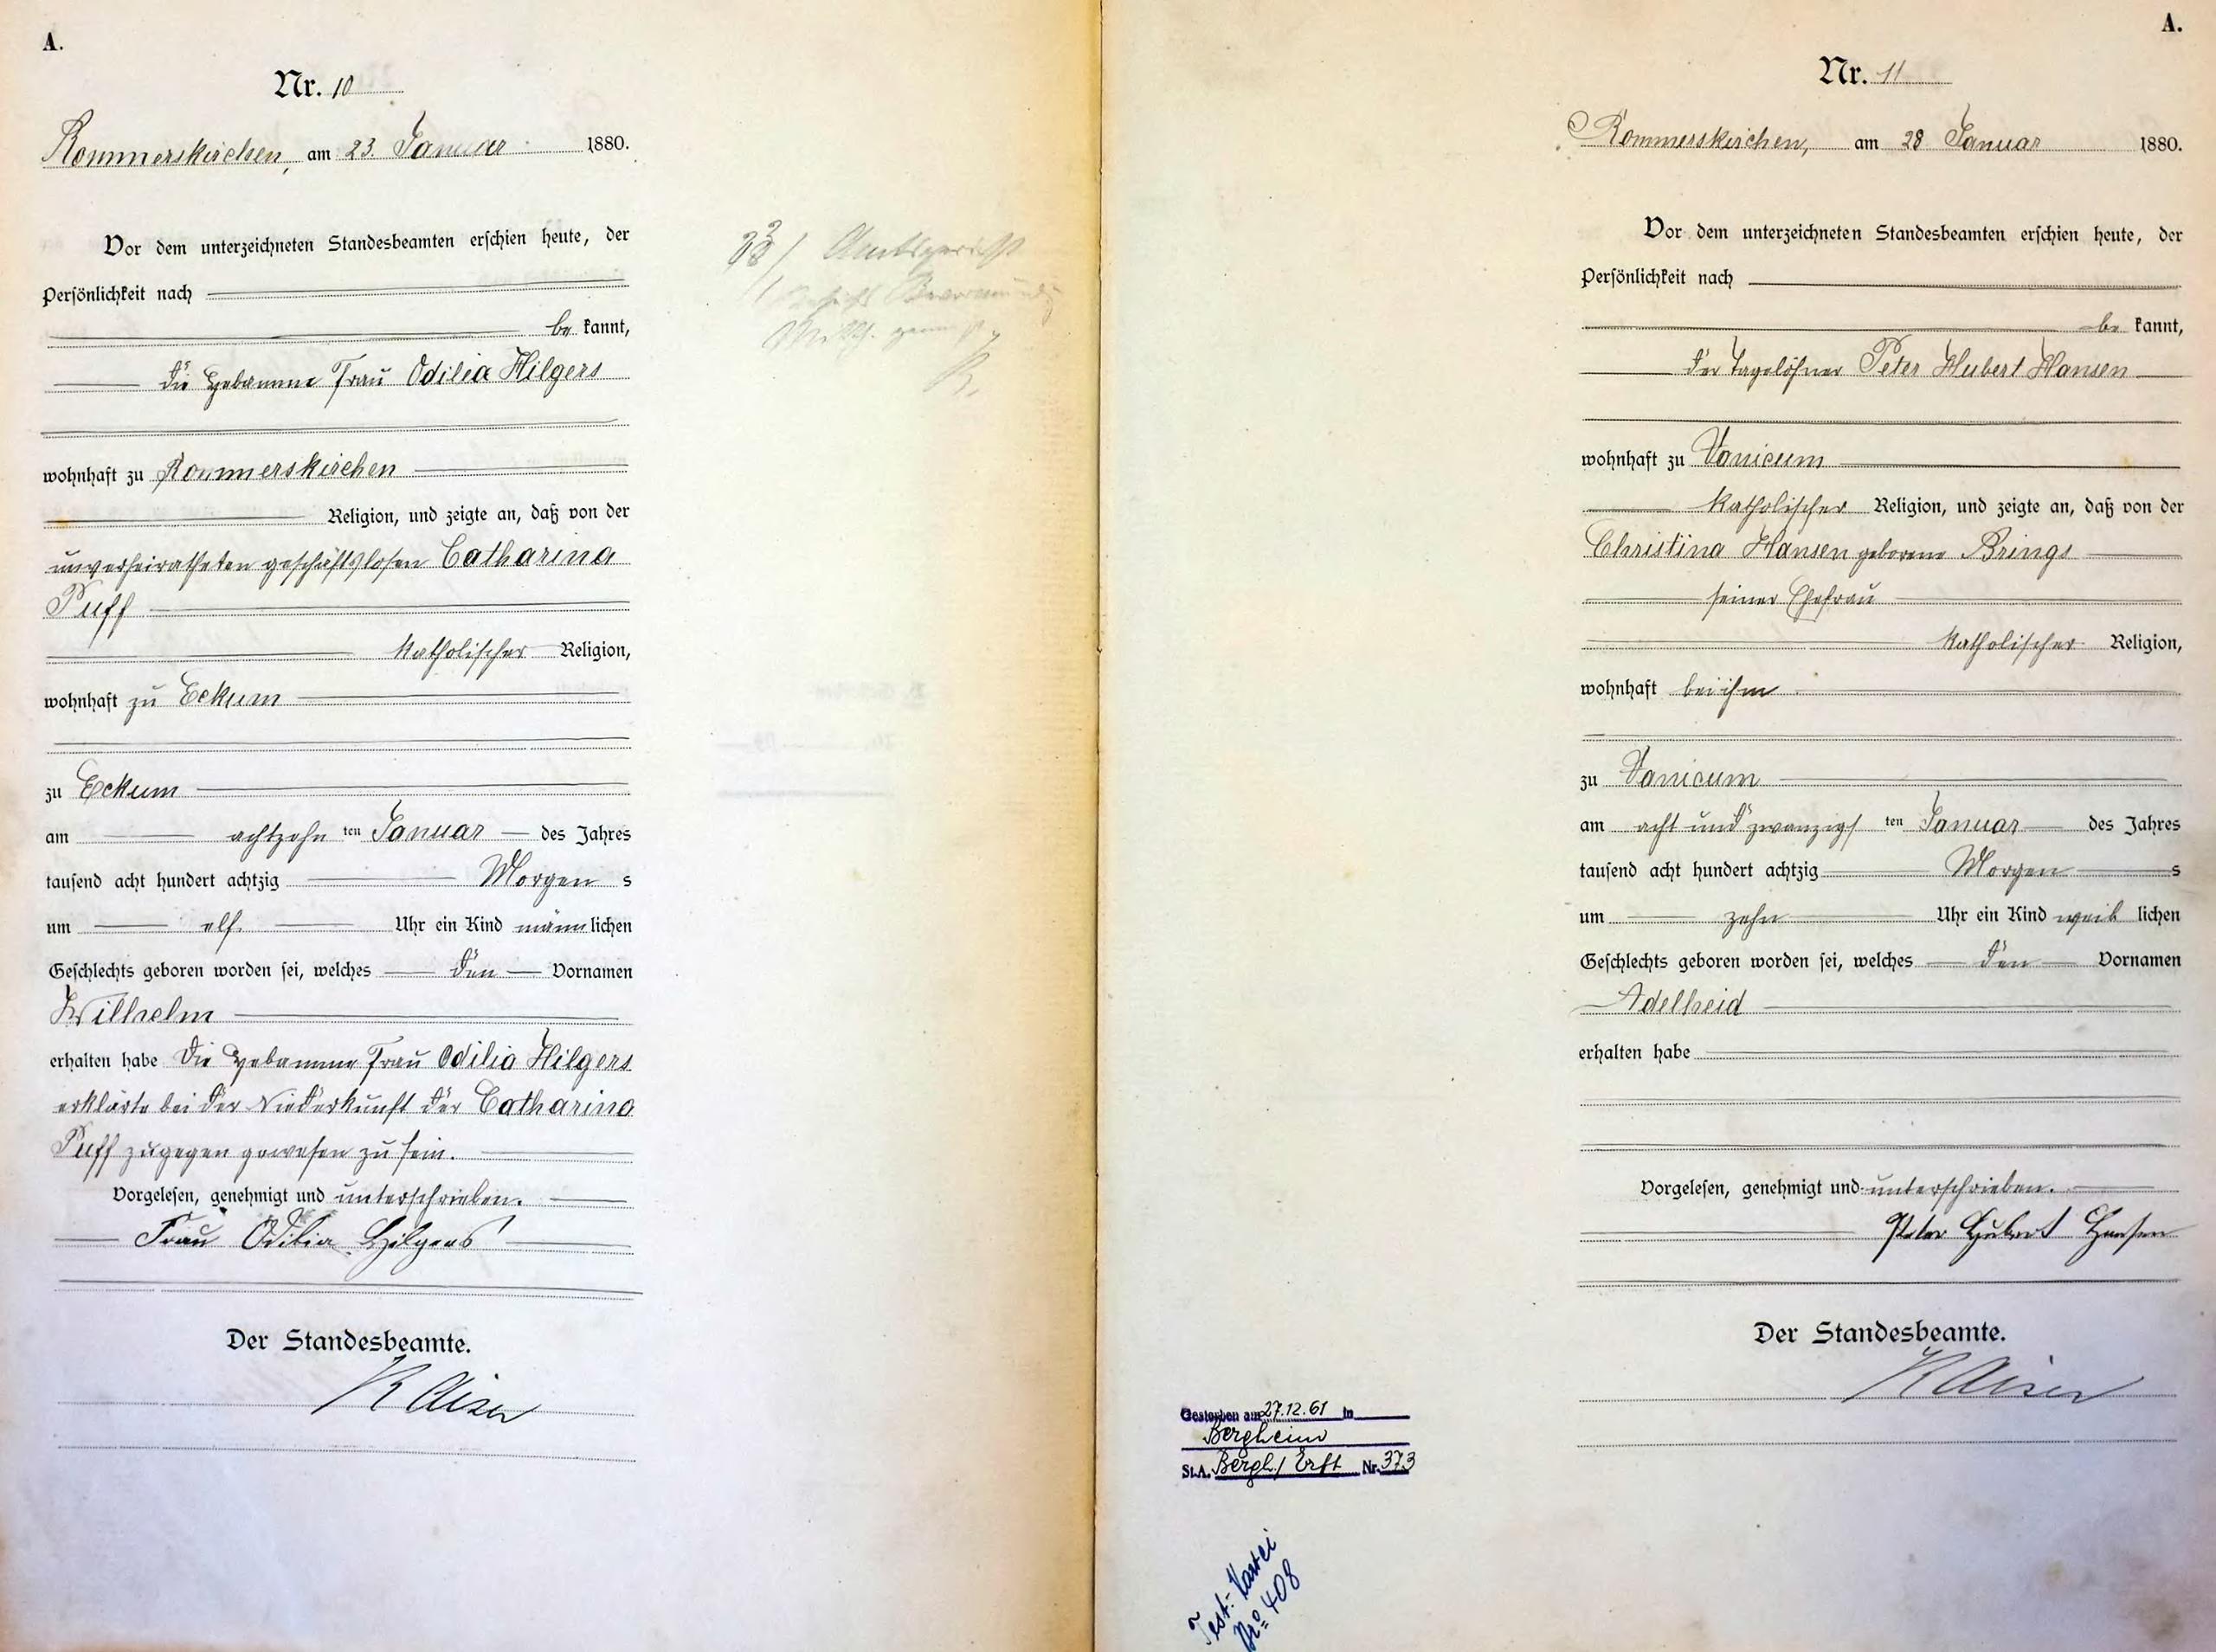 A.
Nr. 10
Rommerskirchen, am 23. Januar 1880.
Vor dem unterzeichneten Standesbeamten erschien heute, der
Persönlichkeit nach
be kannt,
die Hebamme Frau Odilia Hilgers
wohnhaft zu Rommerskirchen
Religion, und zeigte an, daß von der
unverheiratheten geschäftslosen Catharina
Puff
katholischer Religion,
wohnhaft zu Eckum
zu Eckum
am achtzehn ten Januar des Jahres
tausend acht hundert achtzig Morgen s
um elf Uhr ein Kind männ lichen
Geschlechts geboren worden sei, welches den Vornamen
Wilhelm
erhalten habe Die Hebamme Frau Odilia Hilgers
erklärte bei der Niederkunft der Catharina
Puff zugegen gewesen zu sein.
Vorgelesen, genehmigt und unterschrieben.
Frau Odilia Hilgers
Der Standesbeamte.
Kaiser
23/1 Amtsgericht
behufs
Mitth. gemacht
K.
A.
Nr. 11
Rommerskirchen, am 28 Januar 1880.
Vor dem unterzeichneten Standesbeamten erschien heute, der
Persönlichkeit nach
be kannt,
der Tagelöhner Peter Hubert Hansen
wohnhaft zu Vanicum
katholischer Religion, und zeigte an, daß von der
Christina Hansen geborene Brings
seiner Ehefrau
katholischer Religion,
wohnhaft bei ihm
zu Vanicum
am acht und zwanzigs ten Januar des Jahres
tausend acht hundert achtzig Morgen s
um zehn Uhr ein Kind weib lichen
Geschlechts geboren worden sei, welches den Vornamen
Adelheid
erhalten habe
Vorgelesen, genehmigt und unterschrieben.
Peter Hubert Hansen
Der Standesbeamte.
Kaiser
Gestorben am 27.12.61 in
Bergheim
St.A. Bergh./Erft Nr. 373
Test.-Kartei
No 408